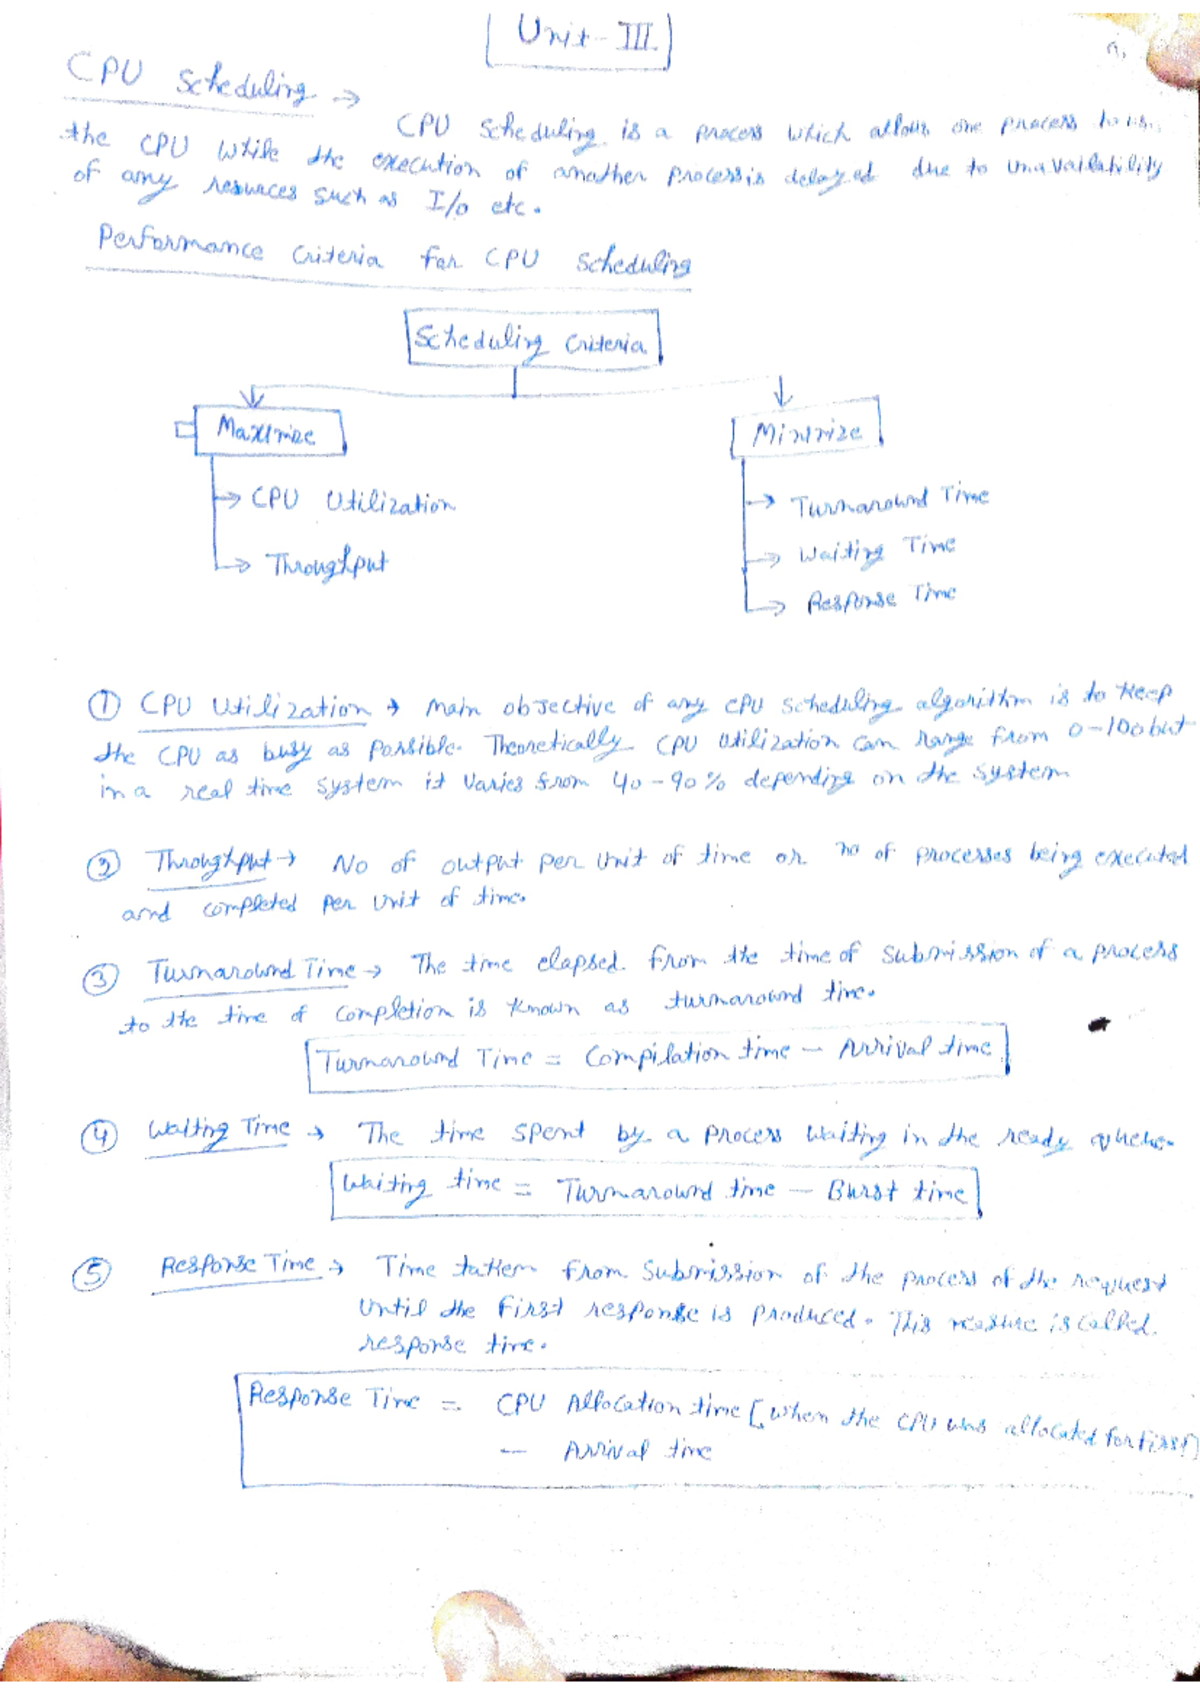 Unit-III.
CPU Scheduling →
CPU Scheduling is a process which allows one process to us
the CPU while the execution of another process is delayed due to unavailability
of any resources such as I/o etc.
Performance Criteria for CPU Scheduling
Scheduling Criteria
Maximize
Minimize
→ CPU Utilization
→ Throughput
→ Turnaround Time
→ Waiting Time
→ Response Time
① CPU Utilization → Main objective of any CPU Scheduling algorithm is to keep
the CPU as busy as Possible. Theoretically CPU Utilization can range from 0-100 but
in a real time System it varies from 40-90% depending on the System
② Throughput → No of output per Unit of time or no of processes being executed
and completed Per Unit of time.
③ Turnaround Time → The time elapsed from the time of Submission of a process
to the time of Completion is known as turnaround time.
Turnaround Time = Compilation time - Arrival time
④ Waiting Time → The time spent by a process waiting in the ready queue.
Waiting time = Turnaround time - Burst time
⑤ Response Time → Time taken from Submission of the process of the request
Until the first response is Produced. This measure is called
response time.
Response Time = CPU Allocation time [when the CPU was allocated for first]
- Arrival time